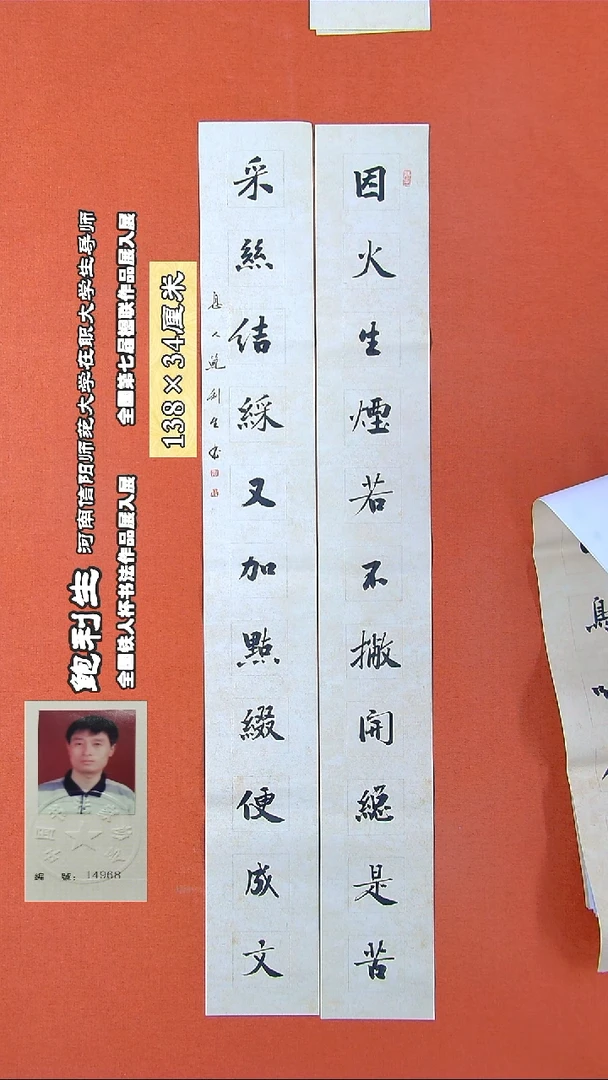 因火生煙若不撇開總是苦
采絲結綵又加點綴便成文
息人鲍利生书
138×34厘米
全国第七届楹联作品展入展
全国铁人杯书法作品展入展
鲍利生 河南信阳师范大学在职大学生导师
编 號：14968